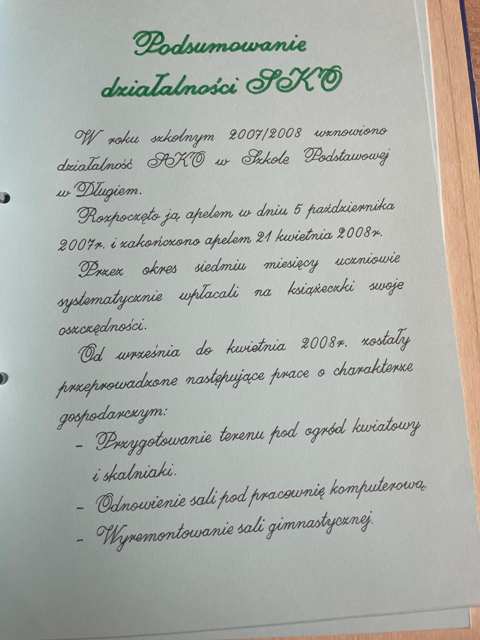 Podsumowanie
działalności SKO
W roku szkolnym 2007/2008 wznowiono
działalność SKO w Szkole Podstawowej
w Długiem.
Rozpoczęto ją apelem w dniu 5 października
2007r. i zakończono apelem 21 kwietnia 2008r.
Przez okres siedmiu miesięcy uczniowie
systematycznie wpłacali na książeczki swoje
oszczędności.
Od września do kwietnia 2008r. zostały
przeprowadzone następujące prace o charakterze
gospodarczym:
- Przygotowanie terenu pod ogród kwiatowy
i skalniaki.
- Odnowienie sali pod pracownię komputerową.
- Wyremontowanie sali gimnastycznej.